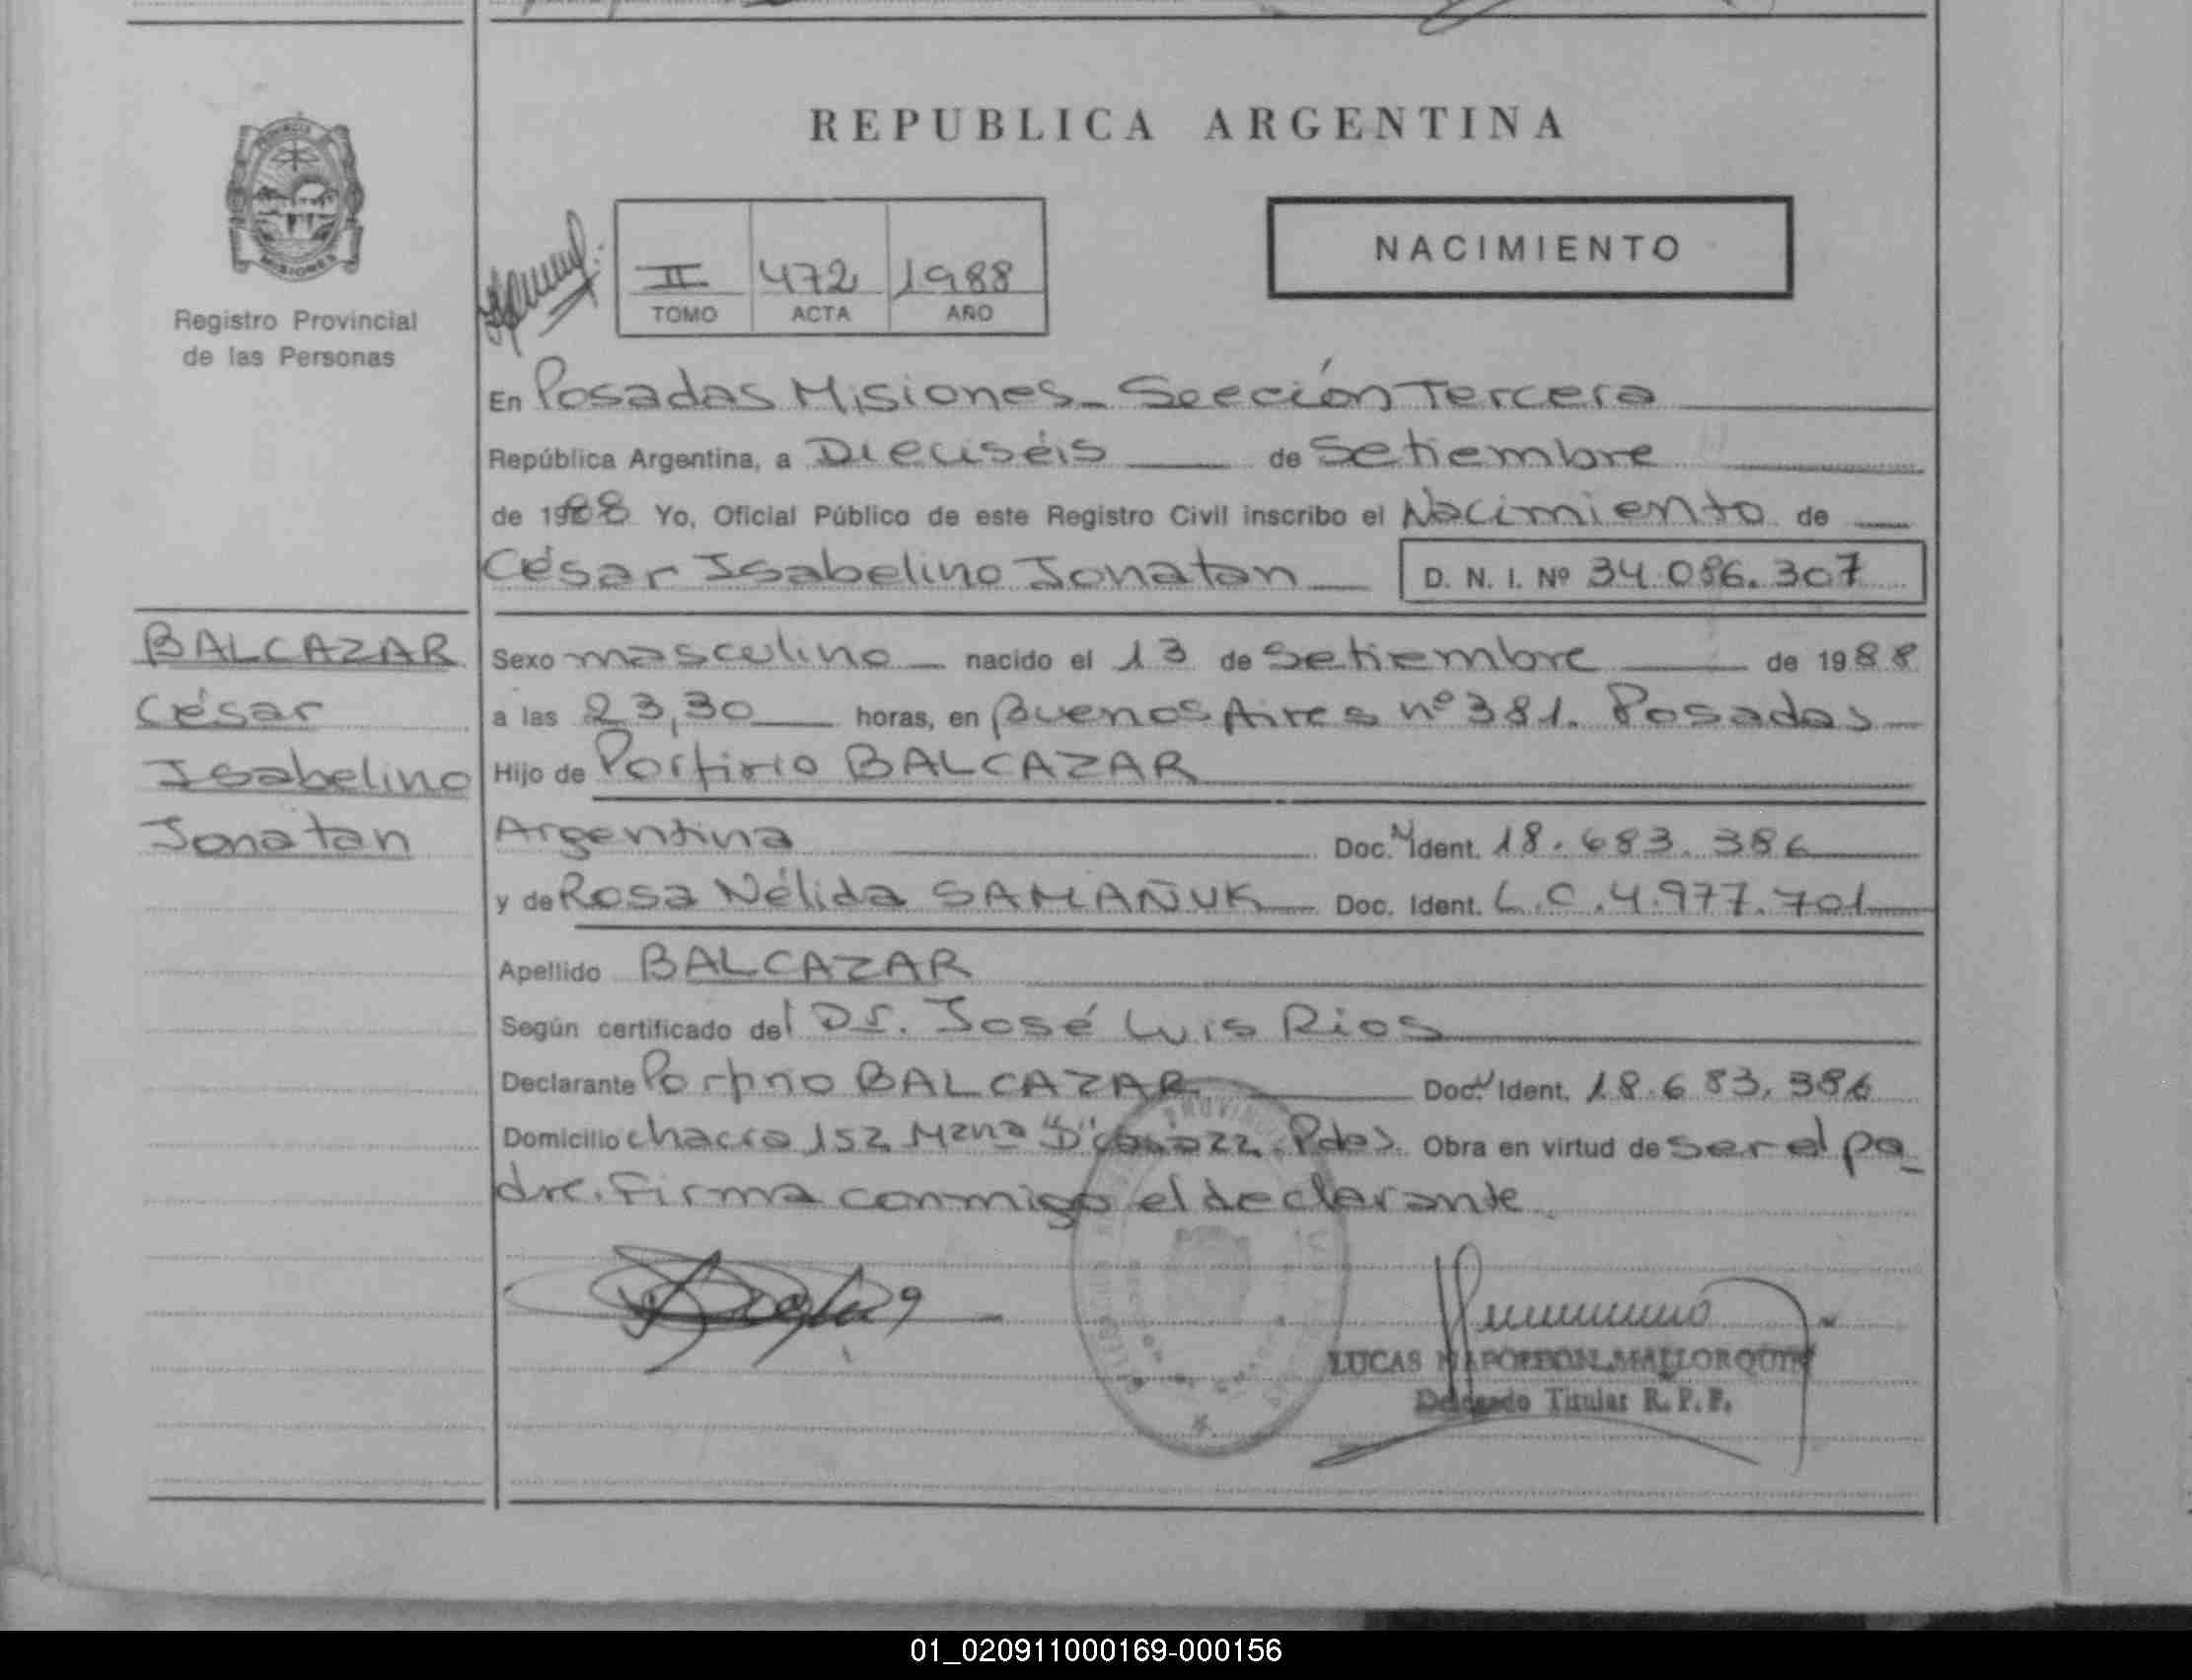 REPUBLICA ARGENTINA
PROVINCIA
MISIONES
Registro Provincial
de las Personas
II 472 1988
TOMO ACTA AÑO
NACIMIENTO
En Posadas Misiones - Sección Tercera
República Argentina, a Dieciséis de Setiembre
de 1988 Yo, Oficial Público de este Registro Civil inscribo el Nacimiento de
César Isabelino Jonatan D. N. I. Nº 34.086.307
BALCAZAR
César
Isabelino
Jonatan
Sexo masculino nacido el 13 de Setiembre de 1988
a las 23,30 horas, en Buenos Aires nº 381. Posadas
Hijo de Porfirio BALCAZAR
Argentina Doc. Ident. 18.683.386
y de Rosa Nélida SAMAÑUK Doc. Ident. L.C. 4.977.701
Apellido BALCAZAR
Según certificado del Dr. José Luis Rios
Declarante Porfirio BALCAZAR Doc. Ident. 18.683.386
Domicilio chacra 152 Mzna "D" casa 22. Pdas. Obra en virtud de ser el pa_
dre. Firma conmigo el declarante
LUCAS NAPOLEON MALLORQUIN
Delegado Titular R. P. P.
01_020911000169-000156